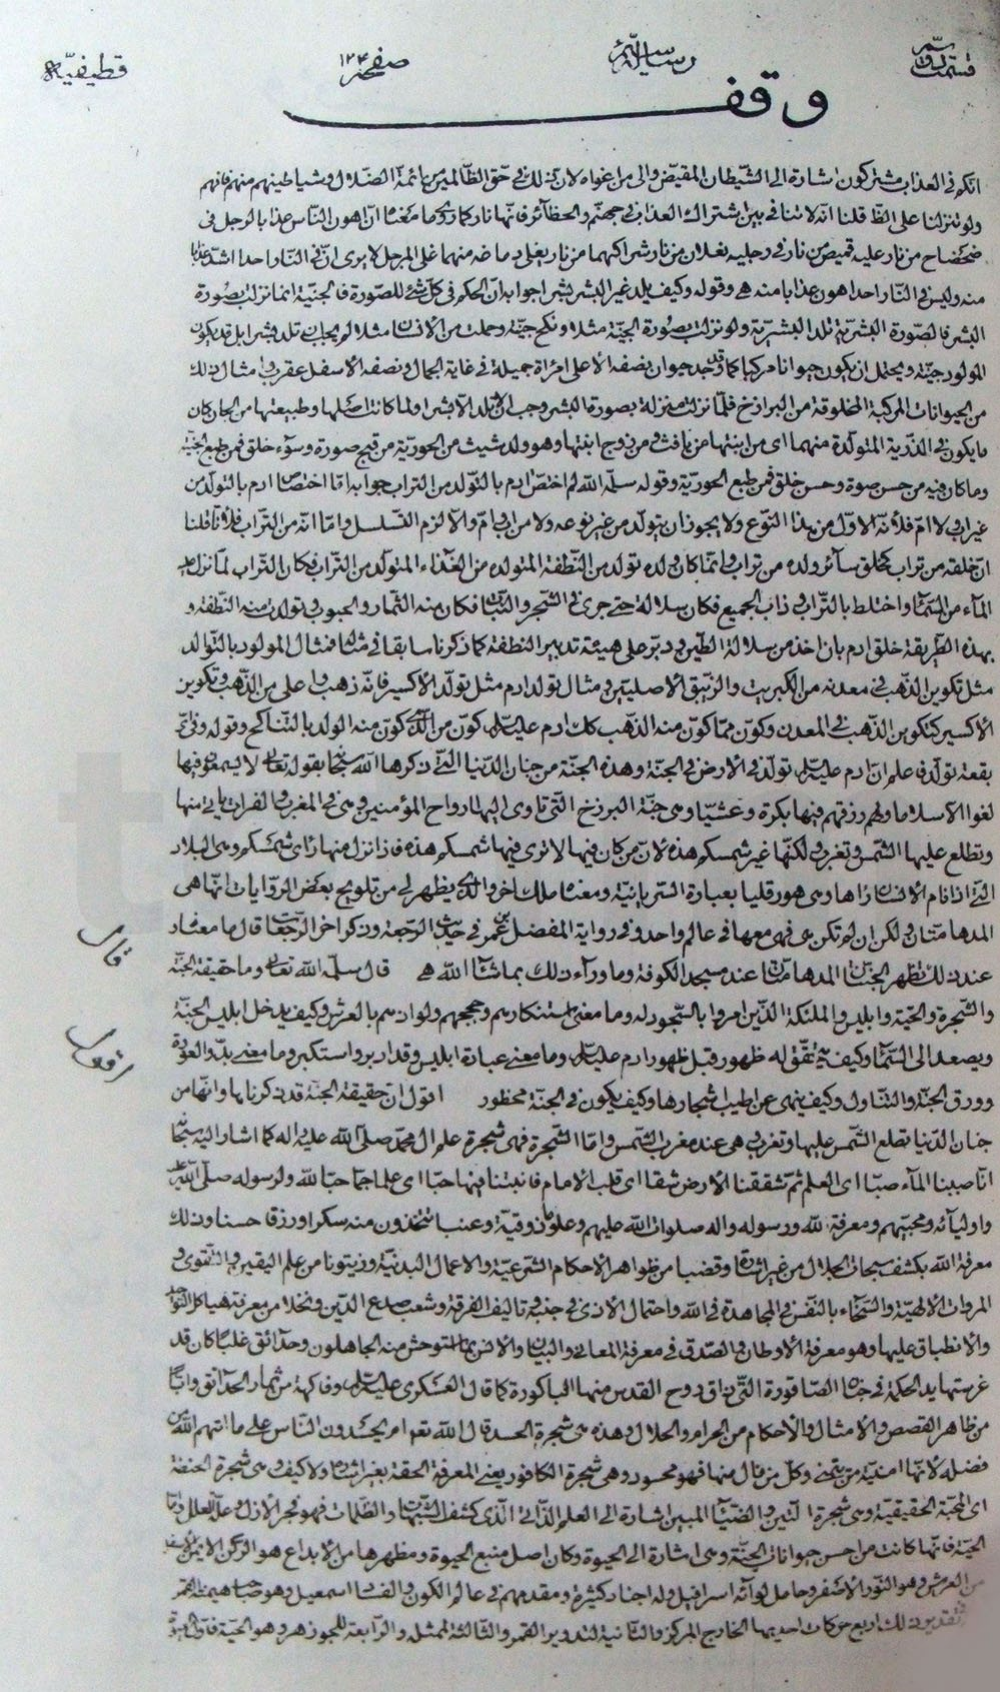 قسمت دوم رساله صفحه ١٢٤ قطيفيه
وقف
انكم في العذاب مشتركون اشارة الى الشيطان المقيض والى من اغواه لان ذلك في حق الظالمين من ائمة الضلال وشياطينهم منهم فانهم
ولو تنزلنا على الظ قلنا انه لا تنافي بين اشتراك العذاب في جهنم والحظائر فانها نار كما روي ما معناه ان اهون الناس عذابا لرجل في
ضحضاح من نار عليه قميص من نار وفي رجليه نعلان من نار شراكهما من نار يغلي دماغه منهما غلي المرجل لا يرى ان في النار احدا اشد عذابا
منه وليس في النار احد اهون عذابا منه هي وقوله وكيف يلد غير البشر بشرا جوابه ان الحكم في كل شيء للصورة فالجنية انما نزلت بصورة
البشر فالصورة البشرية تلد البشرية ولو نزلت بصورة الجنية مثلا ونكح جنية وحملت من الانسان مثلا لم يجب ان تلد بشرا بل قد يكون
المولود جنية ويحتمل ان يكون حيوانا مركبا كما وجد حيوان نصفه الاعلى امرأة جميلة في غاية الجمال ونصفه الاسفل عقرب وامثال ذلك
من الحيوانات المركبة المخلوقة من البرازخ فلما نزلت منزلة بصورة البشر وجب ان لا تلد الا بشرا ولما كانت اصلها وطبيعتها من الجان كان
ما يكون في الذرية المتولدة منهما اى من ابنتها من يافث في مزدوج ابنتها وهو ولد شيث من الحورية من قبح صورة وسوء خلق فمن طبع الجنية
وما كان فيه من حسن صوة وحسن خلق فمن طبع الحورية وقوله سلمه الله لم اختص ادم بالتولد من التراب جوابه اما اختصاص ادم بالتولد من
غير اب ولا ام فلانه الاول من هذا النوع ولا يجوز ان يتولد من غير نوعه ولا من اب وام والا لزم التسلسل واما انه من التراب فلانا قلنا
ان خلقه من تراب كخلق سائر ولده من تراب وانما كان ولده تولد من النطفة المتولدة من الغذاء المتولد من التراب فكان التراب لما نزل عليه
الماء من السماء واختلط بالتراب وذاب الجميع فكان سلالة حتى جرى في الشجر والنبات فكان منه الثمار والحبوب وتولدت منه النطفة و
بهذه الطريقة خلق ادم بان اخذ من سلالة الطين ودبر على هيئة تدبير النطفة كما ذكرنا سابقا في مثاله فمثال المولود بالتوالد
مثل تكوين الذهب في معدنه من الكبريت والزيبق الاصليين ومثال تولد ادم مثل تولد الاكسير فانه ذهب واعلى من الذهب وتكوين
الاكسير كتكوين الذهب في المعدن وكون مما كون منه الذهب كك ادم عليه السلام كون من الذي كون منه الولد بالتناكح وقوله وفي اي
بقعة تولد فاعلم ان ادم عليه السلام تولد في الارض في الجنة وهذه الجنة من جنان الدنيا التي ذكرها الله سبحانه بقوله تعالى لا يسمعون فيها
لغوا الا سلاما ولهم رزقهم فيها بكرة وعشيا وهي جنة البرزخ التي تاوى اليها ارواح المؤمنين وهي في المغرب والفرات ياتي منها
وتطلع عليها الشمس وتغرب ولكنها غير شمسكم هذه لان من كان فيها لا ترى فيها شمسكم هذه فاذا نزل منها راى شمسكم وهي البلاد
التي اذا نام الانسان راها وهي هورقليا بعبارة السريانية ومعناه ملك اخر والذي يظهر لي من تلويح بعض الروايات انها هي
المدهامتان ولكن ان لم تكن هي فهي معها في عالم واحد وفي رواية المفضل بن عمر في حديث الرجعة وذكر اخر الرجعات قال ما معناه
عند ذلك تظهر الجنتان المدهامتان عند مسجد الكوفة وما وراء ذلك بما شاء الله هي قال سلمه الله تعالى وما حقيقة الجنة
والشجرة والحية وابليس والملئكة الذين امروا بالسجود له وما معنى استنكارهم وحججهم ولواذهم بالعرش وكيف يدخل ابليس الجنة
ويصعد الى السماء وكيف يتفق له ظهور قبل ظهور ادم عليه السلام وما معنى عبادة ابليس وقد ادبر واستكبر وما معنى بلته والعودة
وورق الجنة والتناول وكيف ينهى عن اطيب اشجارها وكيف يكون في الجنة محظور اقول ان حقيقة الجنة قد ذكرناها وانها من
جنان الدنيا تطلع الشمس عليها وتغرب وهي عند مغرب الشمس واما الشجرة فهي شجرة علم ال محمد صلى الله عليه واله كما اشار اليه سبحانه
انا صببنا الماء صبا اى العلم ثم شققنا الارض شقا اى قلب الامام فانبتنا فيها حبا اى علما جما حبا لله ولرسوله صلى الله عليه
واوليائه ومحبيهم ومعرفة لله ورسوله واله صلوات الله عليهم وعلوما ذوقية وعنبا تتخذون منه سكرا ورزقا حسنا وذلك
معرفة الله بكشف سبحات الجلال من غير اشارة وقضبا من ظواهر الاحكام الشرعية والاعمال البدنية وزيتونا من علم اليقين والتقوى و
المروات الالهية والسخاء بالنفس في المجاهدة في الله واحتمال الاذى في جنبه وتاليف الفرقة وشعب صدع الدين ونخلا من معرفة هياكل التوحيد
والانطباق عليها وهو معرفة الاوطان والصدق في معرفة المعاني والبيان والانس بما استوحش منه الجاهلون وحدائق غلبا كان قد
غرستها يد الحكمة في جنان الصاقورة التي ذاق روح القدس منها الباكورة كما قال العسكري عليه السلام وفاكهة من ثمار الحدائق وابا
من ظاهر القصص والامثال والاحكام من الحرام والحلال وهذه هي شجرة الحسد قال الله تعم ام يحسدون الناس على ما اتيهم الله من
فضله لانها امنية من يتمنى وكل من نال منها فهو محسود وهي شجرة الكافور يعني المعرفة الحقة بغير اشارة ولا كيف وهي شجرة الحنطة
اى المحبة الحقيقية وهي شجرة التين والضياء المبين اشارة الى العلم الذاتي الذي كشف الشبهات والظلمات فهو فجر الازل وعلة العلل واما
الحية فانها كانت من احسن حيوانات الجنة وهي اشارة الى الحيوة وكان اصل منبع الحيوة ومظهرها من الابداع هو الركن الايمن الاسفل
من العرش وهو النور الاصفر وحامل لوائه اسرافيل وله اجناد كثيرة ومقدمهم في عالم الكون والفساد اسمعيل وهو صاحب هيمنة القمر
تقدير ذلك اربع حركات احديها الخارج المركز والثانية لتدوير القمر والثالثة لممثله والرابعة للجوزهر وهو الحية
قال